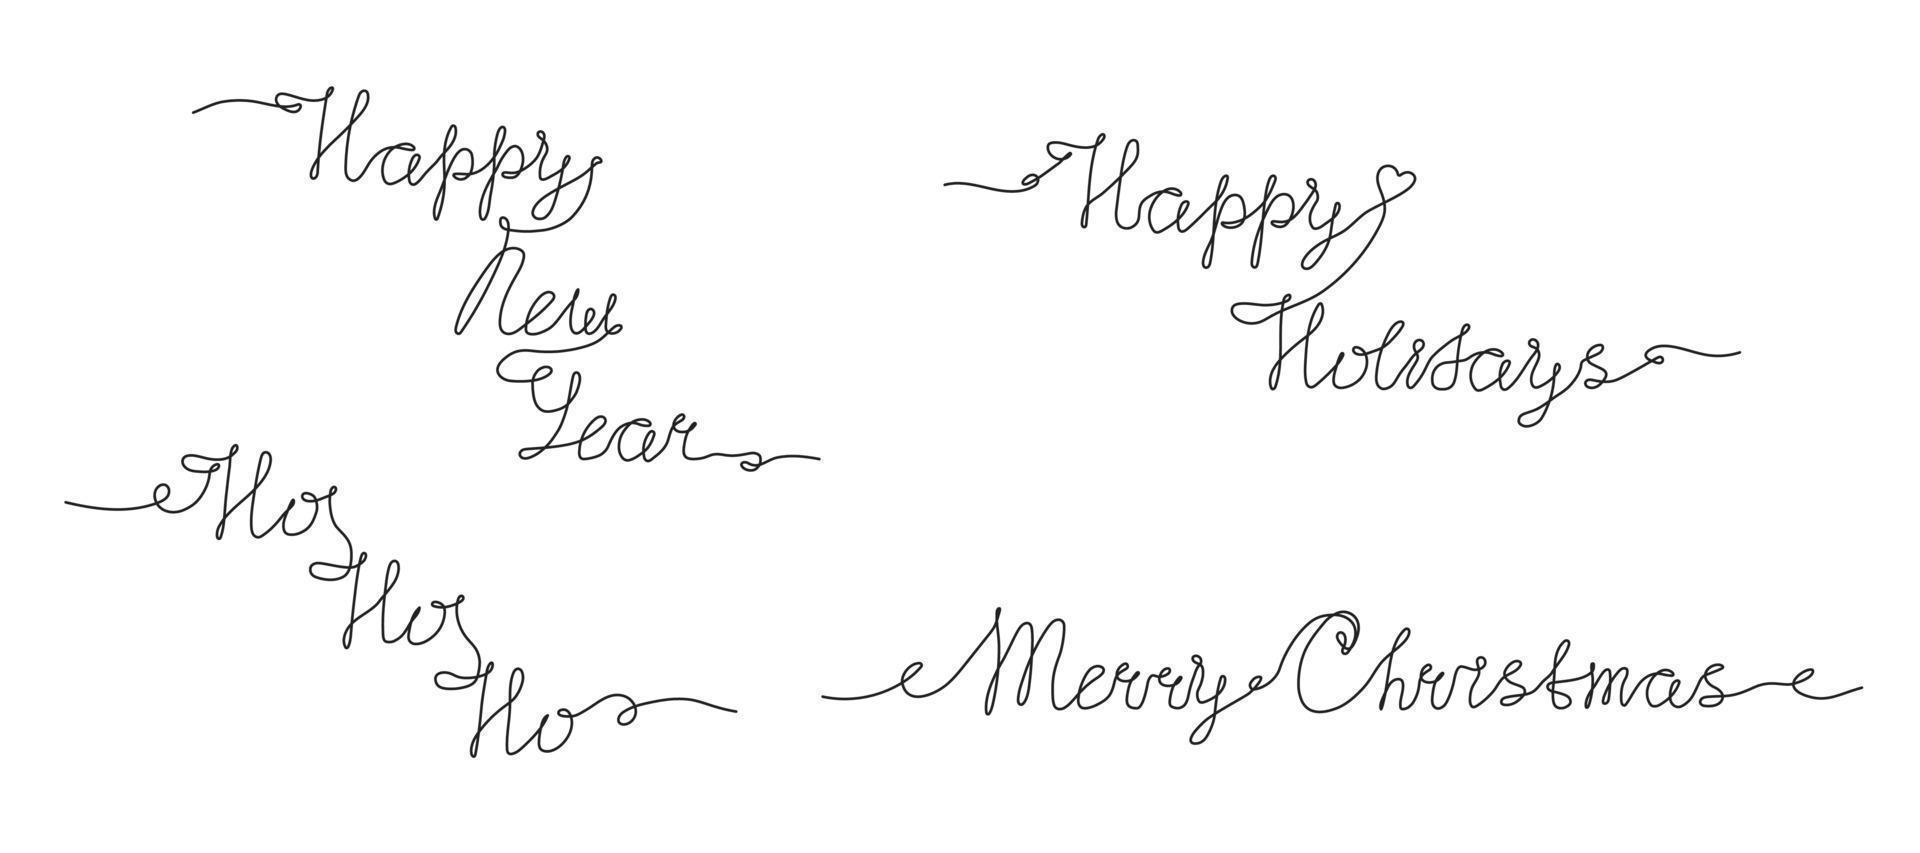 Happy
New
Year
Happy
Holidays
Ho
Ho
Ho
Merry Christmas